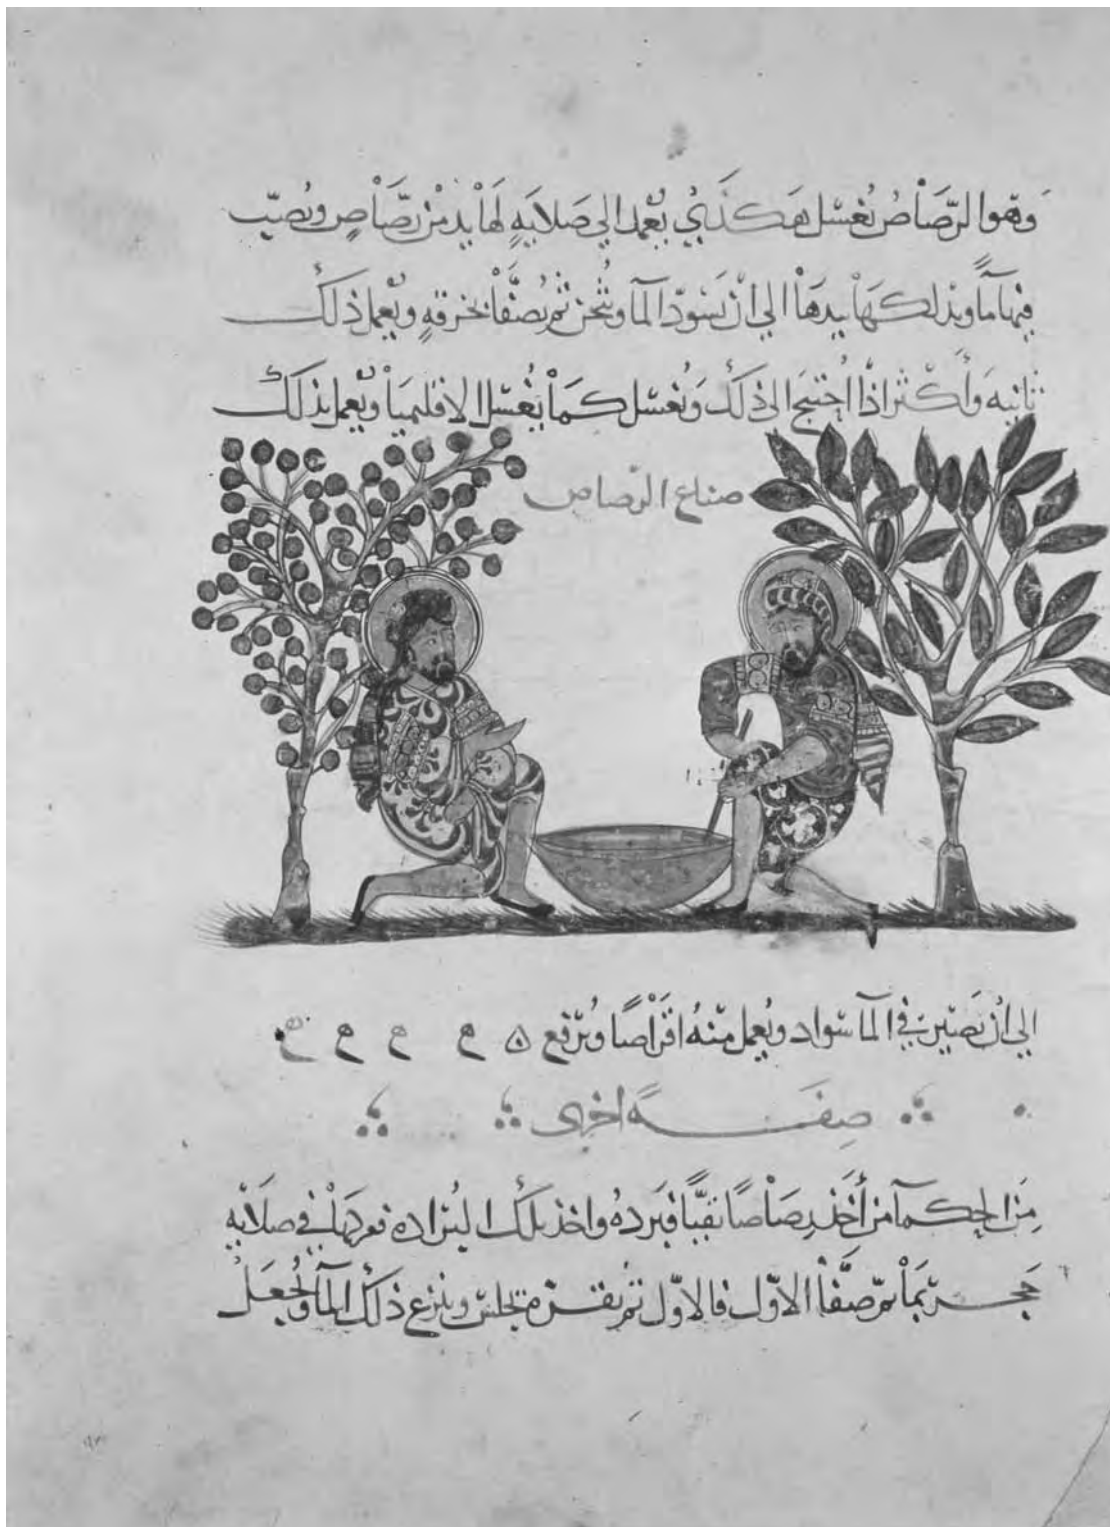 وهوا الرَّصَاصُ يُغسَل هَكَذَي يُعْمد الي صَلايَهٍ لهَا يد مْن رصَّاصٍ ويُصبّ
فيها مآً ويدلكهَا بيدهَا الي انْ يَسْودّ المآ ويثُخن ثم يُصَفَّا بخرقهٍ ويُعمل ذلك
ثانيهَ وَأكثر اذا احُتيجَ الي ذلك وَيُغسَل كمَا يُغسَل الاقليميَا ويُعمل بذلك
صناع الرصاص
الي انْ يَصيّر في المآ سَواد ويُعمل منْهُ اقرَاصًا ويُرفع ه
صِفَـــــه اخري
مِنَ الحِكمآ من أخَذ رصَاصًا نقيّاً فبَردهُ واخذ تلك البُراده فعركهَا في صلايه
حَجـر بمَا ثمّ صَفَّا الاوّل فالاوّل ثم يقـره يجلسّ وينزع ذلك المآ ويُجعَل